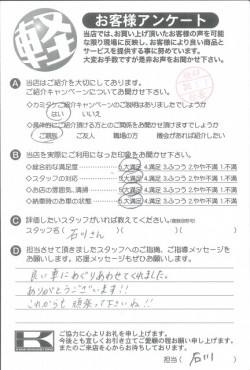 軽
お客様アンケート
当店では、お買い上げ頂いたお客様の声を可能
な限り現場に反映し、お客様により良い商品と
サービスを提供する事に努めています。
大変お手数ですが是非お声をお聞かせ下さい。
A 当店はご紹介を大切にしております。
ご紹介キャンペーンについてお聞かせ下さい。
はい いいえ
ご親族 ご友人 職場の方 機会があれば紹介したい
B 当店を実際にご利用になられた印象をお聞かせ下さい。
◇総合的な満足度 5.大満足 4.満足 3.ふつう 2.やや不満 1.不満
◇スタッフの対応 5.大満足 4.満足 3.ふつう 2.やや不満 1.不満
◇お店の雰囲気、清掃 5.大満足 4.満足 3.ふつう 2.やや不満 1.不満
◇納車時のお車の状態 5.大満足 4.満足 3.ふつう 2.やや不満 1.不満
C 評価したいスタッフがいれば教えてください。(複数回答可)
スタッフ名( 石川さん )( )
D 担当させて頂きましたスタッフへのご指摘、ご指導メッセージを
お願いします。応援メッセージもぜひお願いします。
良い車にめぐりあわせてくれました。
ありがとうございます!!
これからも頑張って下さいね!!
K
ご協力に心よりお礼を申し上げます。
今後とも宜しくお引き立てご愛顧の程お願い申し上げます。
またのご来店を心からお待ちしております。
担当( 石川 )